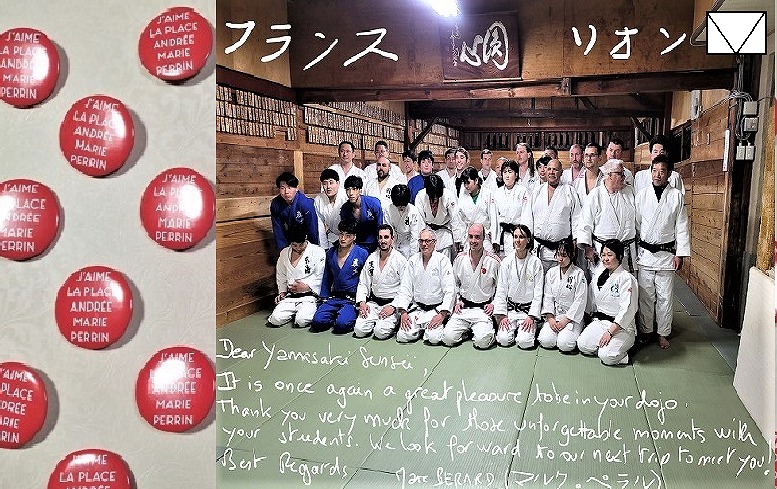 J'AIME
LA PLACE
ANDRÉE
MARIE
PERRIN
J'AIME
LA PLACE
ANDRÉE
MARIE
PERRIN
J'AIME
LA PLACE
ANDRÉE
MARIE
PERRIN
J'AIME
LA PLACE
ANDRÉE
MARIE
PERRIN
J'AIME
LA PLACE
ANDRÉE
MARIE
PERRIN
J'AIME
LA PLACE
ANDRÉE
MARIE
PERRIN
J'AIME
LA PLACE
ANDRÉE
MARIE
PERRIN
J'AIME
LA PLACE
ANDRÉE
MARIE
PERRIN
J'AIME
LA PLACE
ANDRÉE
MARIE
フランス リオン
Dear Yamasaki Sensei,
It is once again a great pleasure to be in your dojo.
Thank you very much for those unforgettable moments with
your students. We look forward to our next trip to meet you!
Best Regards Marc BERARD (マルク・ベラル)